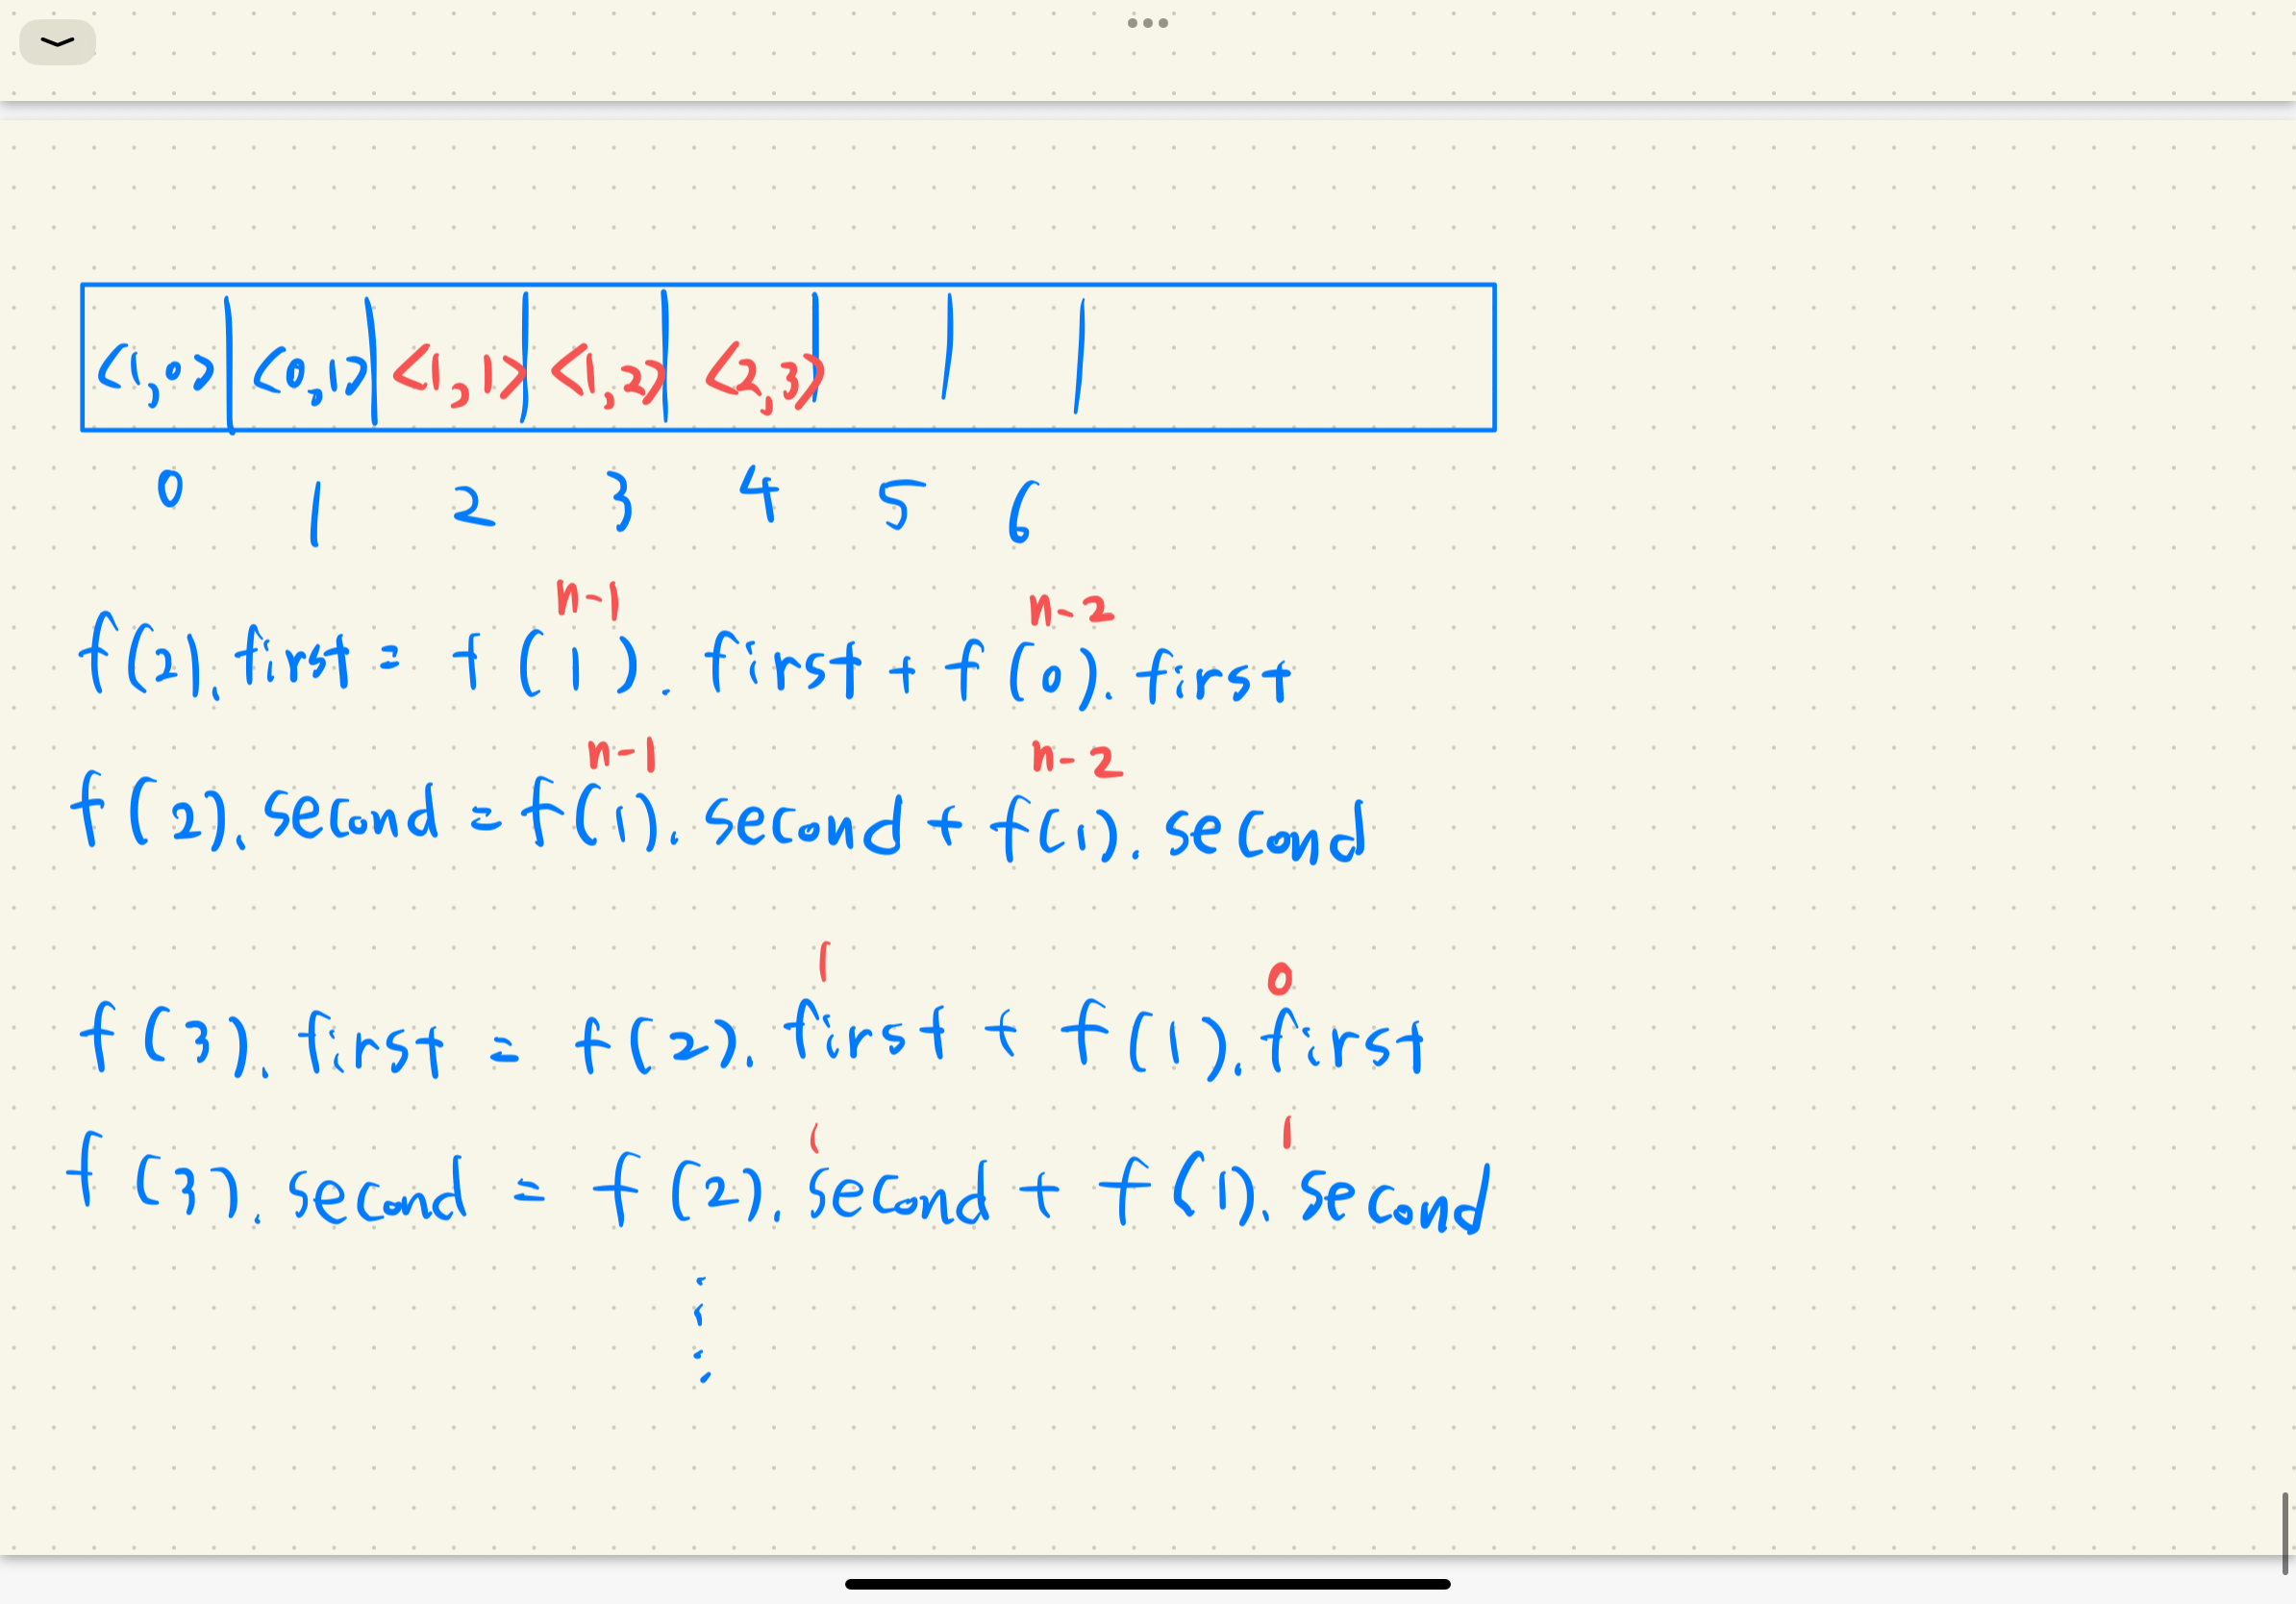 <1,0> <0,1> <1,1> <1,2> <2,3>
0 1 2 3 4 5 6
n-1 n-2
f(2).first = f(1).first + f(0).first
n-1 n-2
f(2).second = f(1).second + f(1).second
1 0
f(3).first = f(2).first + f(1).first
1 1
f(3).second = f(2).second + f(1).second